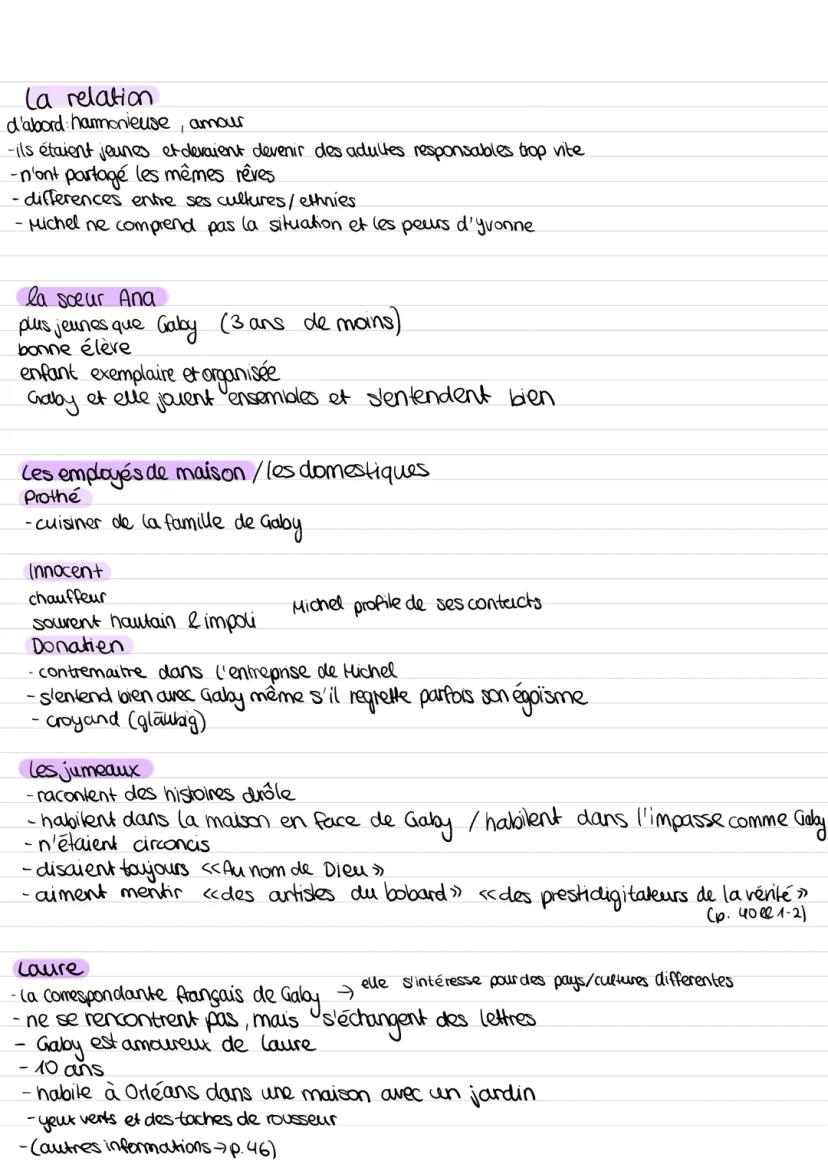 La relation
d'abord: harmonieuse, amour
-ils étaient jeunes et devaient devenir des adultes responsables trop vite
-n'ont partagé les mêmes rêves
- differences entre ses cultures/ethnies
- Michel ne comprend pas la situation et les peurs d'yvonne
la sœur Ana
plus jeunes que Gaby (3 ans de moins)
bonne élève
enfant exemplaire et organisée
Gaby et elle jouent ensembles et s'entendent bien
Les employés de maison / les domestiques
Prothé
-cuisiner de la famille de Gaby
Innocent
chauffeur
souvent hautain & impoli Michel profile de ses contacts
Donatien
- contremaitre dans l'entreprise de Michel
- s'entend bien avec Gaby même s'il regrette parfois son égoïsme
- croyand (gläubig)
Les jumeaux
-racontent des histoires drôle
- habitent dans la maison en face de Gaby / habitent dans l'impasse comme Gaby
- n'étaient circoncis
- disaient toujours <<Au nom de Dieu>>
- aiment mentir <<des artistes du bobard>> <<des prestidigitateurs de la vérité>>
(p. 40 ll 1-2)
Laure
- la correspondante français de Gaby → elle s'intéresse pour des pays/cultures differentes
- ne se rencontrent pas, mais s'échangent des lettres
- Gaby est amoureux de Laure
- 10 ans
- habite à Orléans dans une maison avec un jardin
- yeux verts et des taches de rousseur
-(autres informations→p.46)